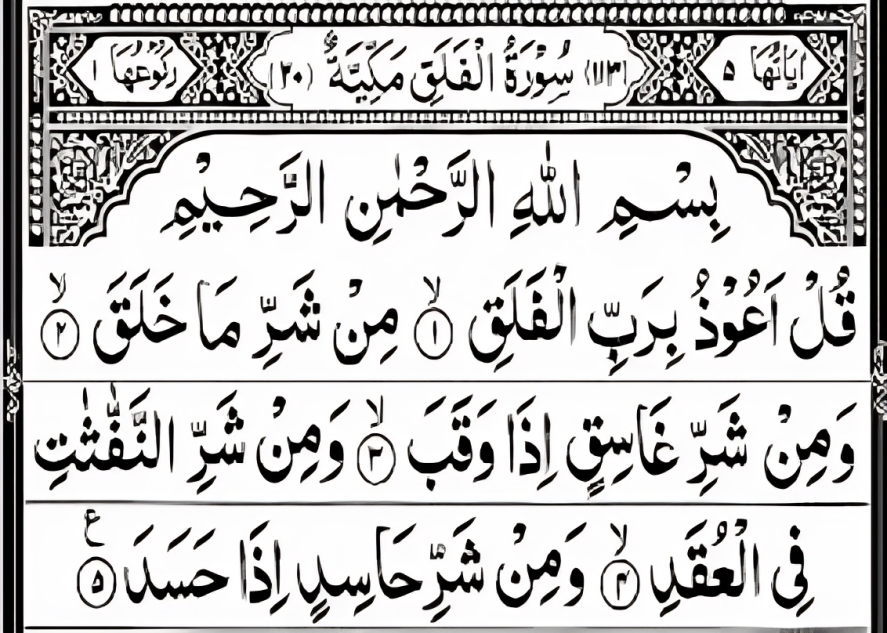 اٰيَاتُهَا ٥ ﴿١١٣﴾ سُوْرَةُ الْفَلَقِ مَكِّيَّةٌ ﴿٢٠﴾ رُكُوْعُهَا ١
بِسْمِ اللّٰهِ الرَّحْمٰنِ الرَّحِيْمِ
قُلْ اَعُوْذُ بِرَبِّ الْفَلَقِ ۙ﴿١﴾ مِنْ شَرِّ مَا خَلَقَ ۙ﴿٢﴾
وَمِنْ شَرِّ غَاسِقٍ اِذَا وَقَبَ ۙ﴿٣﴾ وَمِنْ شَرِّ النَّفّٰثٰتِ
فِى الْعُقَدِ ۙ﴿٤﴾ وَمِنْ شَرِّ حَاسِدٍ اِذَا حَسَدَ ﴿٥﴾ ع